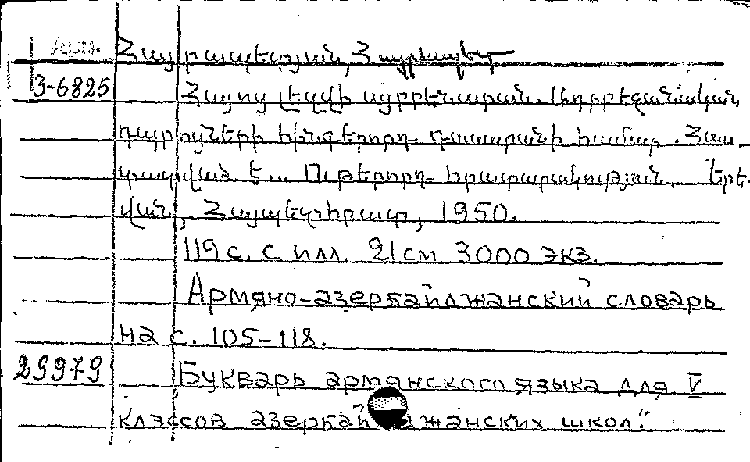 Арм.
Հայրապետյան, Հայրապետ
3-6825
Հայոց լեզվի այբբենարան. Ադրբեջանական
դպրոցների հինգերորդ դասարանի համար. Հաս-
տատված է... Ութերորդ հրատարակություն. Երե-
վան, Հայպետհրատ, 1950.
119 с. с илл. 21 см 3000 экз.
Армяно-азербайджанский словарь
на с. 105-118.
29979 Букварь армянского языка для V
классов азербай джанских школ."